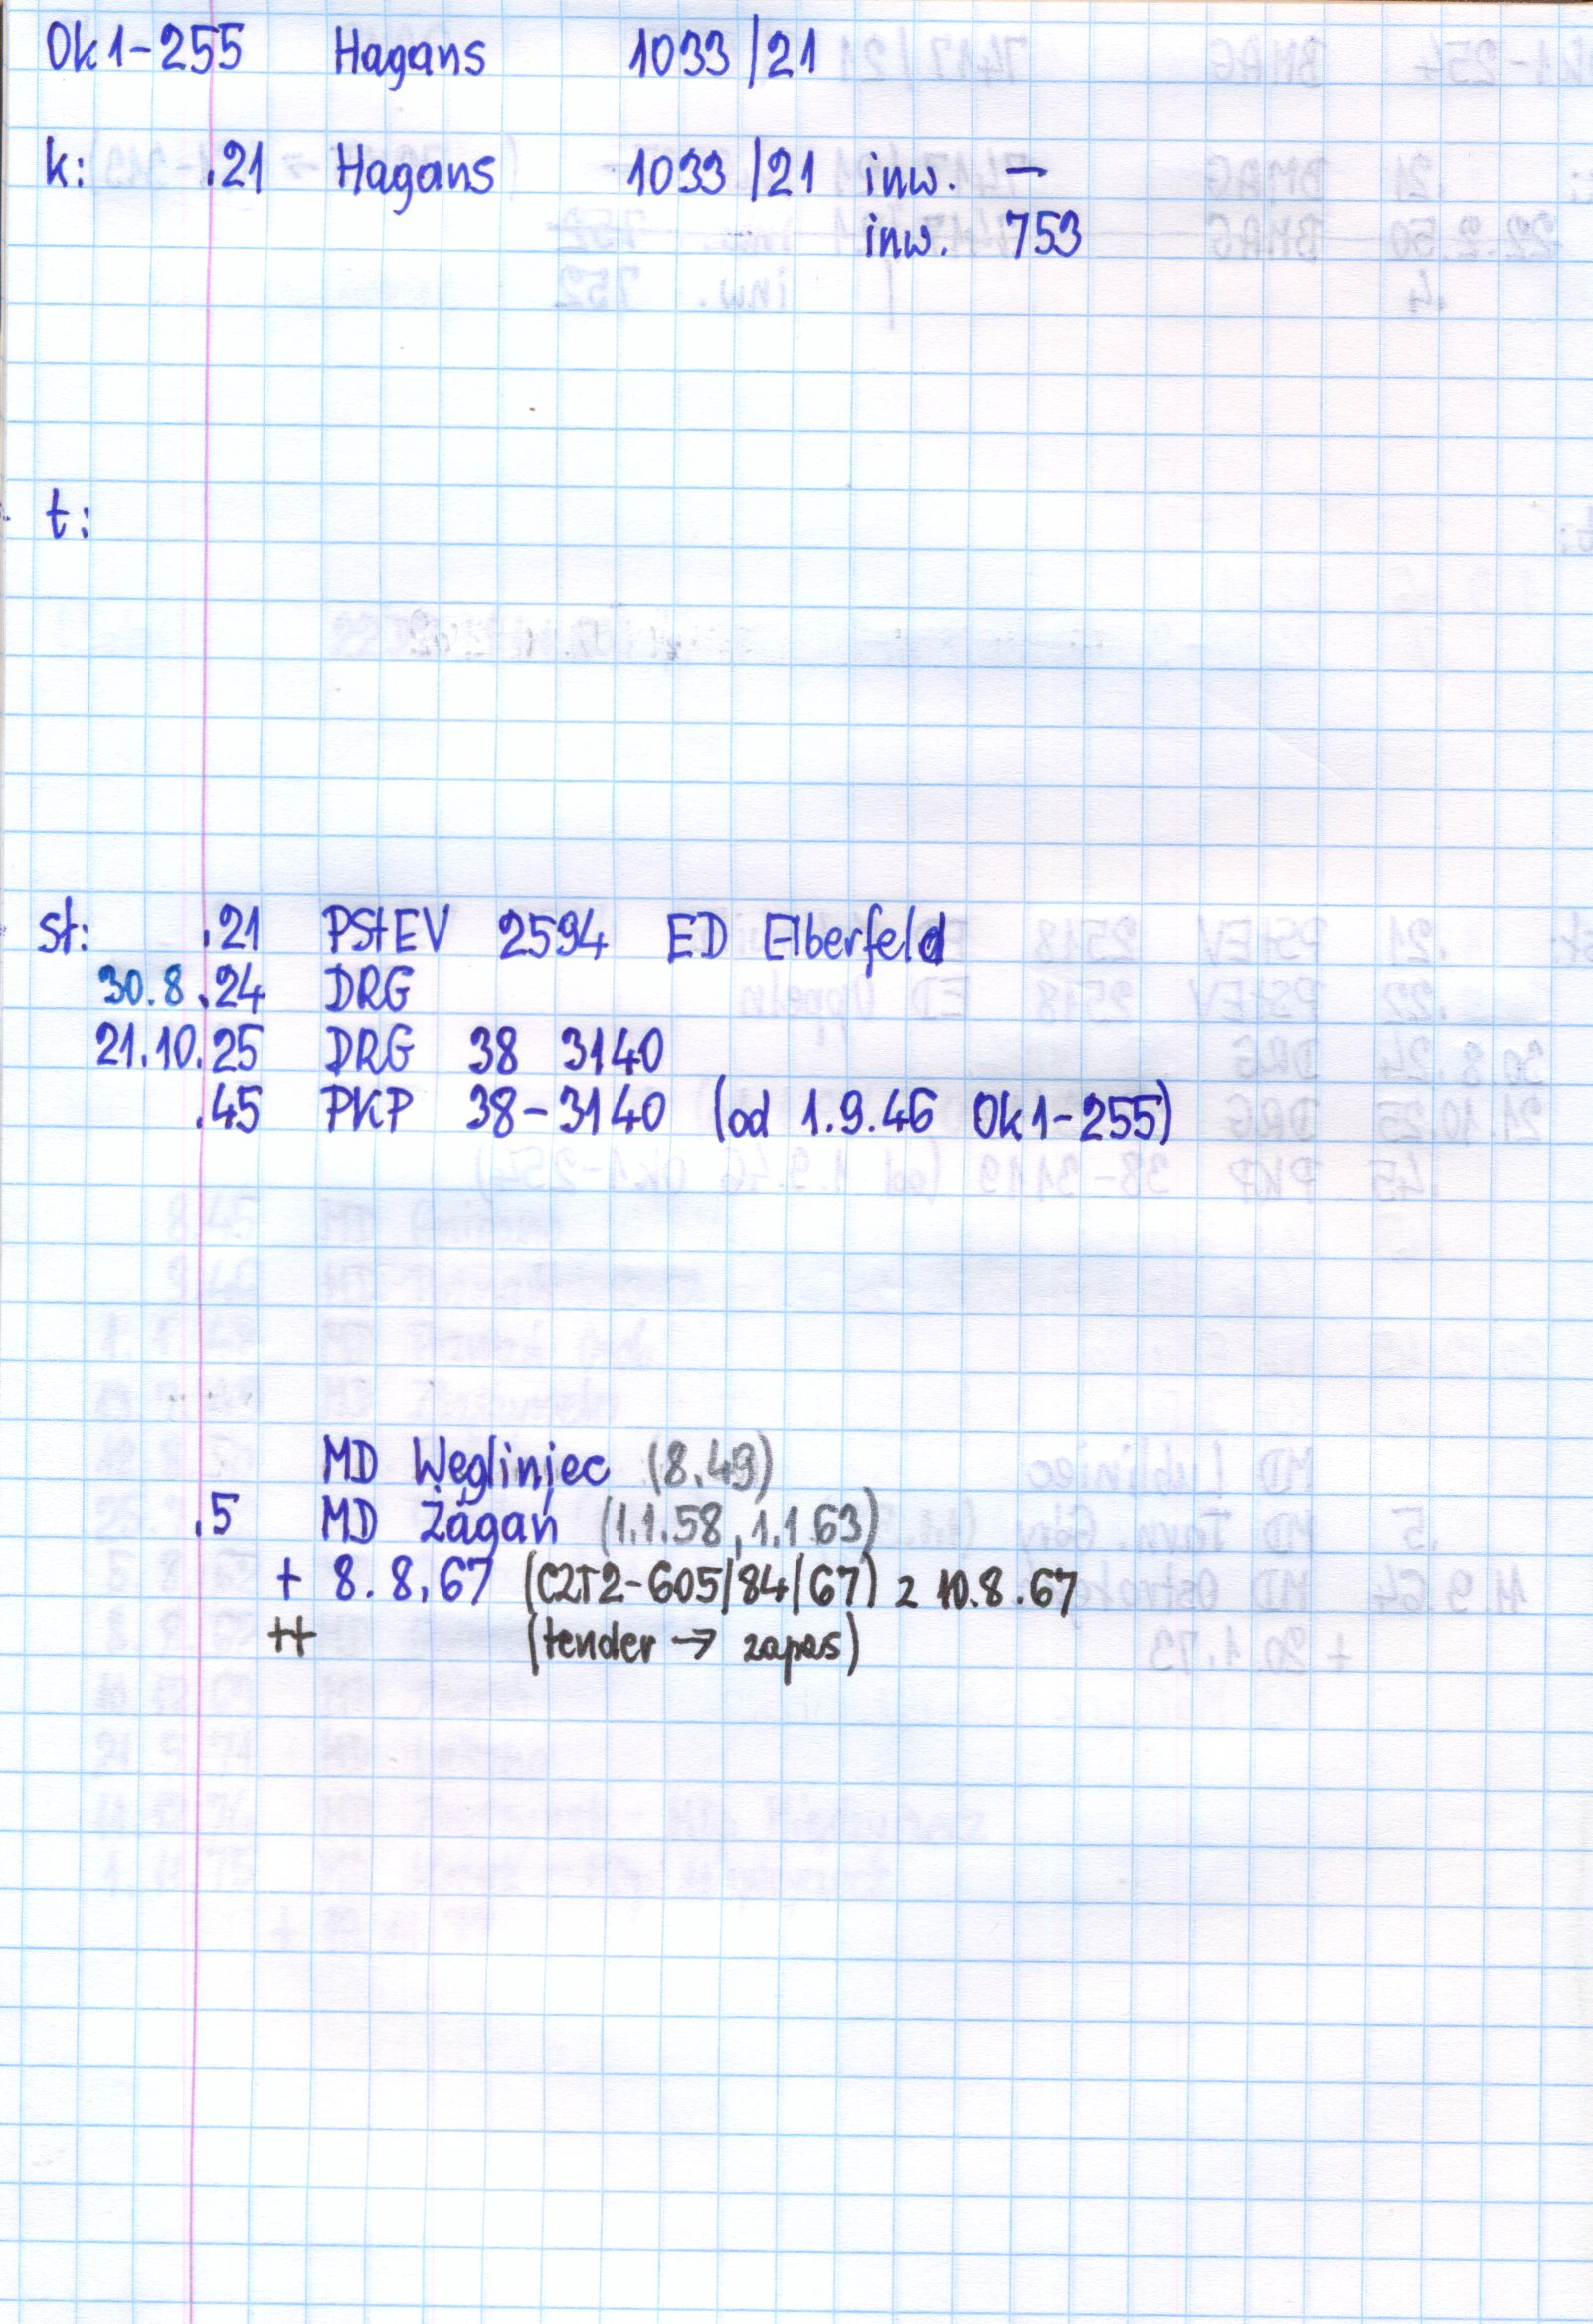 Ok1-255 Hagans 1033/21
k: .21 Hagans 1033/21 inw. –
inw. 753
t:
st: .21 PStEV 2594 ED Elberfeld
30.8.24 DRG
21.10.25 DRG 38 3140
.45 PKP 38-3140 (od 1.9.46 Ok1-255)
MD Węgliniec (8.49)
.5 MD Żagań (1.1.58, 1.1.63)
+ 8.8.67 (C2T2-605/84/67) z 10.8.67
++ (tender → zapas)